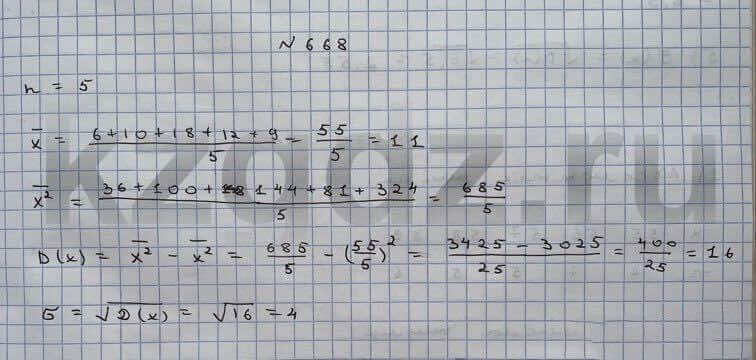 N 668
n = 5
x̄ = (6+10+18+12+9)/5 = 55/5 = 11
x̄² = (36+100+144+81+324)/5 = 685/5
D(x) = x̄² - x̄² = 685/5 - (55/5)² = (3425 - 3025)/25 = 400/25 = 16
σ = √D(x) = √16 = 4
kzgdz.ru